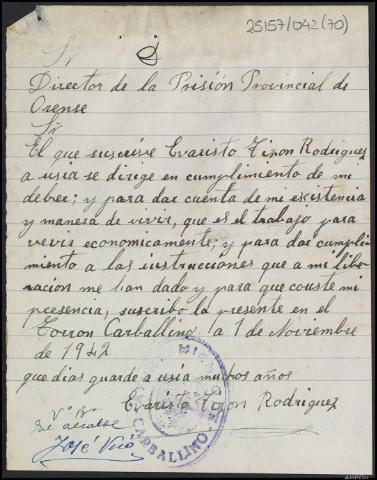 25157/042(70)
Sr
Director de la Prisión Provincial de
Orense
Sr
El que suscrive Evaristo Tizon Rodriguez
a usia se dirige en cumplimiento de mi
deber; y para dar cuenta de mi existencia
y manera de vivir, que es el trabajo para
vevir economicamente; y para dar cumpli-
miento a las instrucciones que a mi libe-
racion me han dado y para que conste mi
presencia, suscribo la presente en el
Carballino a 1 de Noviembre
de 1942
que dias guarde a usia muchos años
Evaristo Tizon Rodriguez
Vº Bº
alcalde
José
CARBALLINO